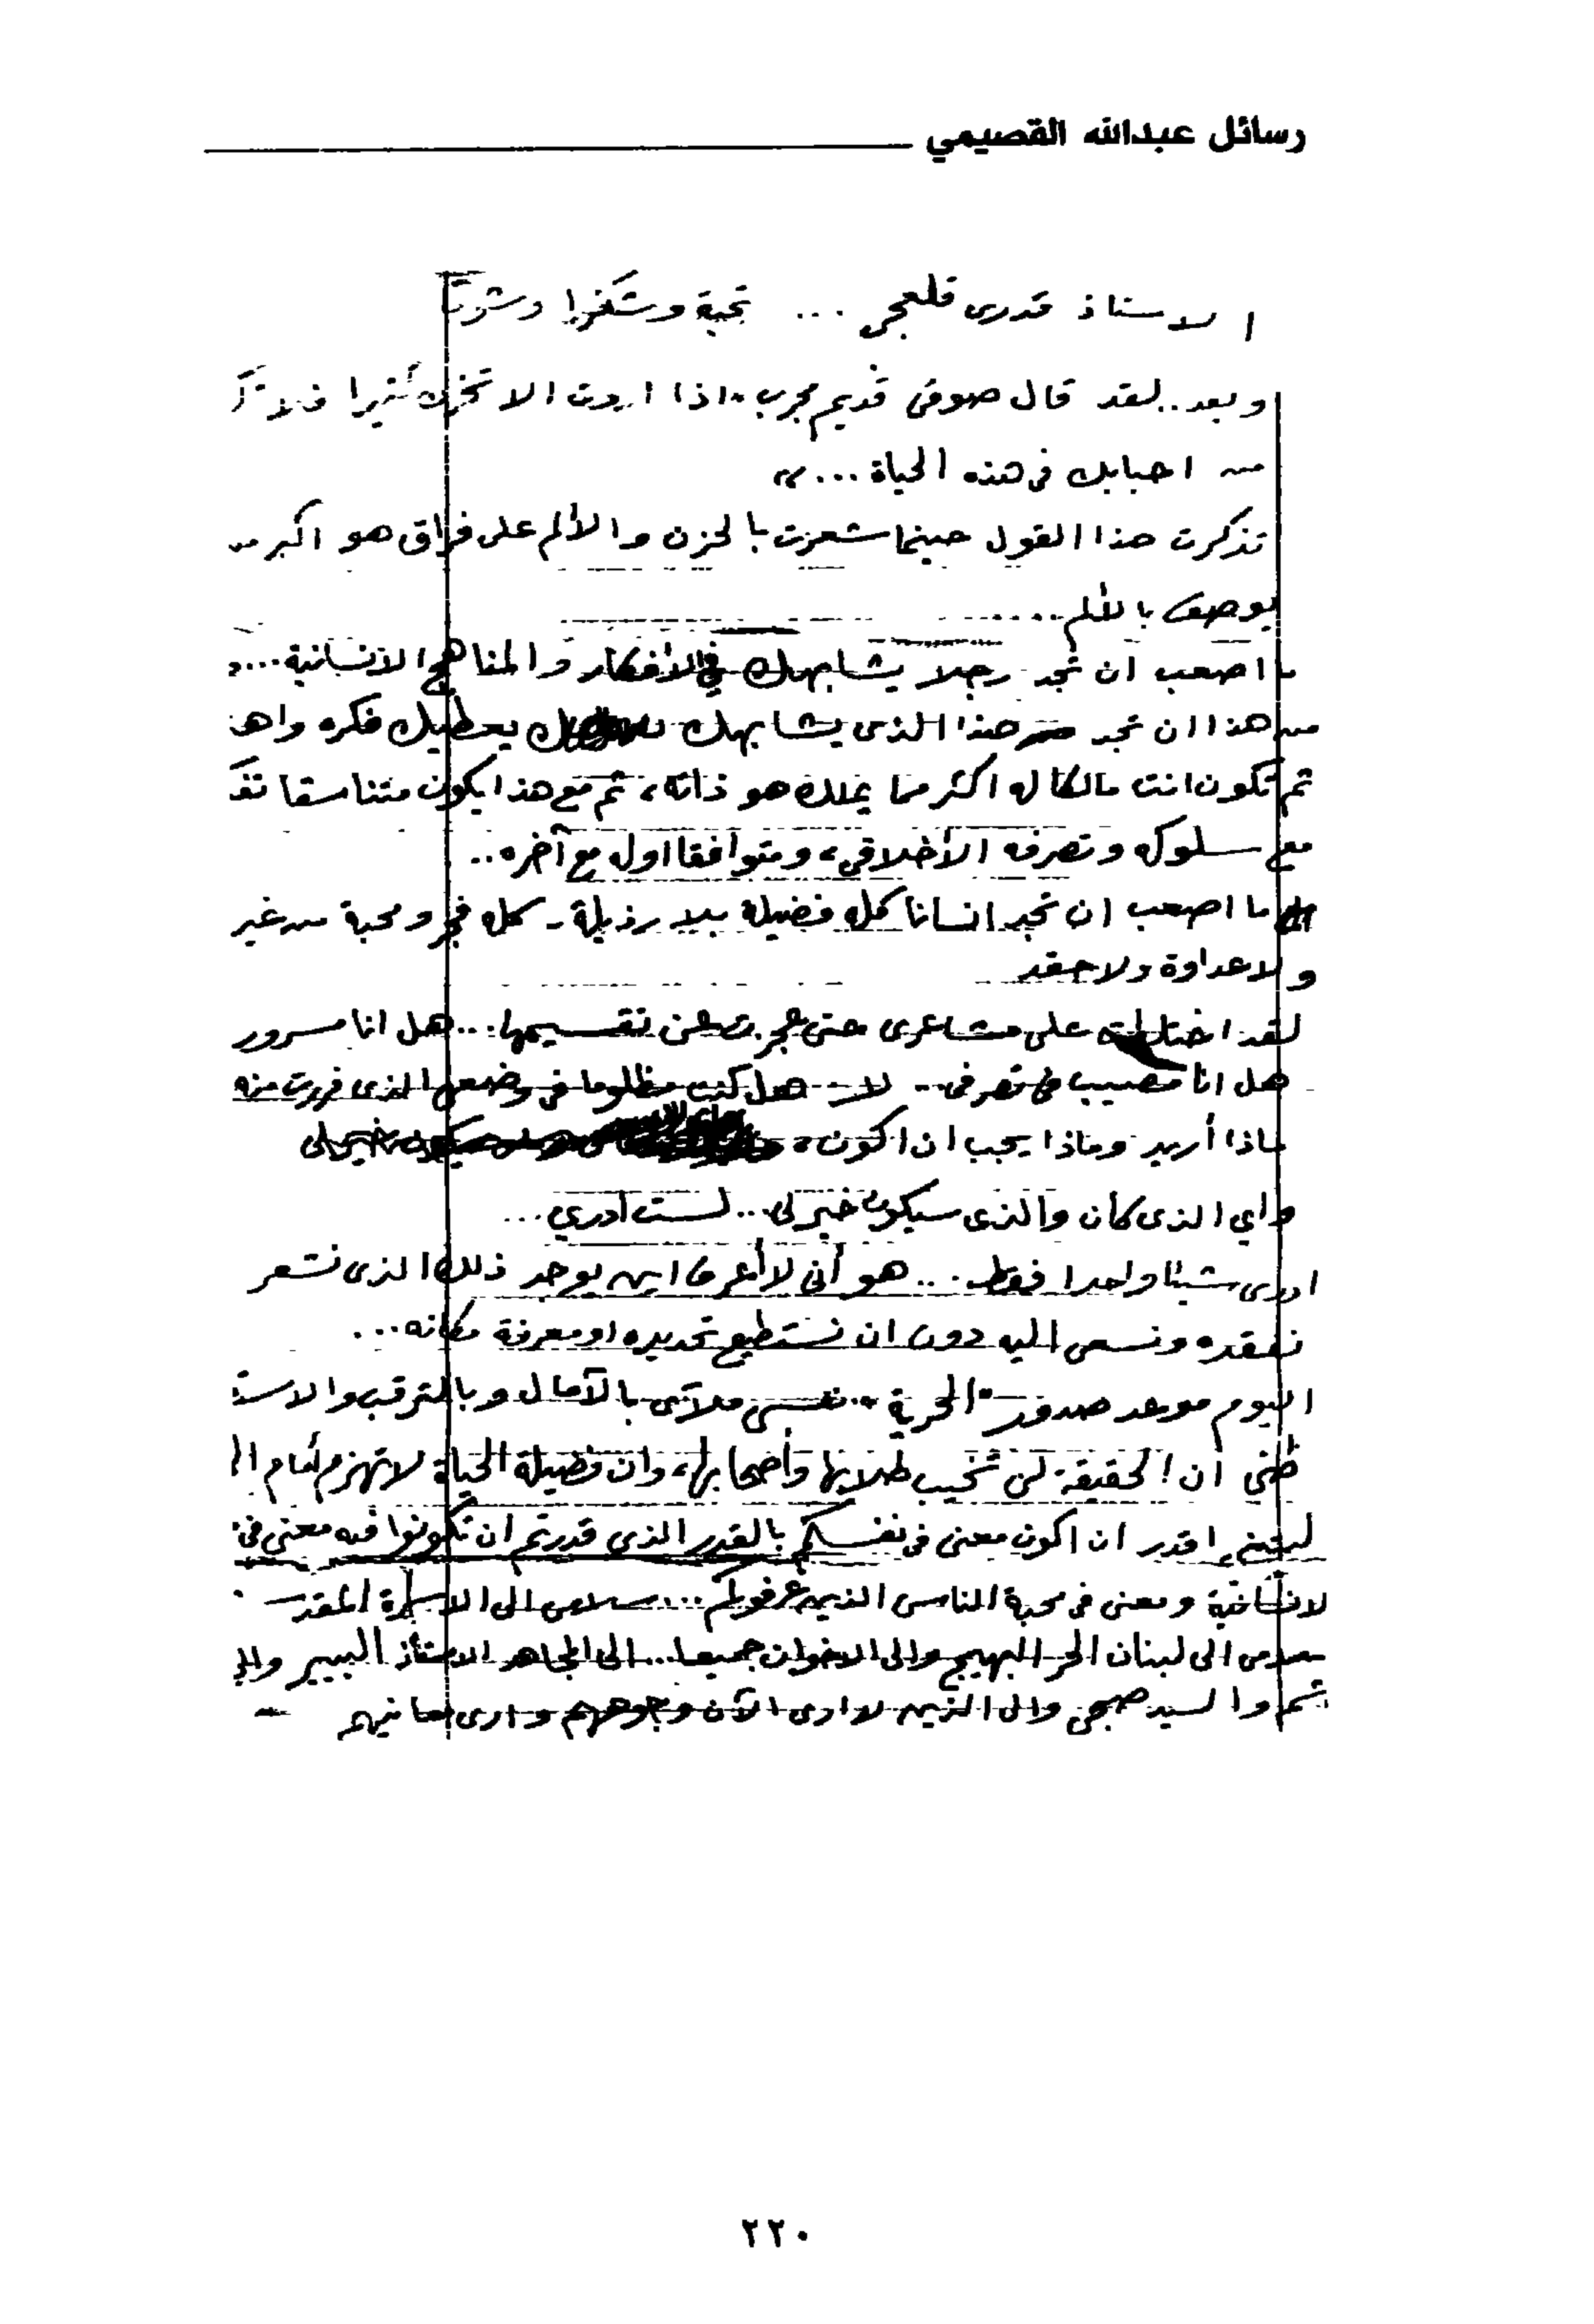 رسائل عبدالله القصيمي
الاستاذ قدرى قلعجى ... تحية وشكرا وشوقا
وبعد.. لقد قال صوفى قديم مجرب "اذا اردت الا تحزن كثيرا فلا تك
من احبابك فى هذه الحياة ..."
تذكرت هذا القول حينما شعرت بالحزن والألم على فراق هو اكبر من
يوصف بالألم.....
ما اصعب ان تجد رجلا يشابهك في الافكار والمناهج الانسانية...
من هذا ان تجد هذا الذى يشابهك يعطيك فكره واه
ثم تكون انت مالكا له اكثر مما يملك هو ذاته، ثم مع هذا يكون متناسقا تف
مع سلوكه وتصرفه الأخلاقي، ومتوافقا اوله مع آخره..
ما اصعب ان تجد انسانا كله فضيلة بلا رذيلة - كله ومحبة من غير
ولا عداوة ولا حقد
لقد اختلطت على مشاعرى حتى عجزت عن تقسيمها... هل انا مسرور
هل انا مصيب فى تصرفى .. لا.. هل كنت مظلوما فى وضعى الذى فررت منه
ماذا أريد وماذا يجب ان اكون، خير لى
واي الذى كان والذى سيكون خير لى... لست ادري ...
ادرى شيئا واحدا فقط.... هو أنى لا أعرف اين يوجد ذلك الذى نشعر
نفقده ونسعى اليه دون ان نستطيع تحديده او معرفة مكانه...
اليوم موعد صدور "الحرية" نفسى ملآى بالآمال وبالترقب والاست
ظنى ان الحقيقة لن تخيب طلابها وأصحابها، وان فضيلة الحياة لا تهزم أمام ال
ليتنى اقدر ان اكون معنى فى نفسكم بالقدر الذى قدرتم ان تكونوا فيه معنى فى
لانسانية ومعنى فى محبة الناس الذين عرفوكم.... سلامى الى الاسرة المقدس
سلامى الى لبنان الحر البهيج والى الاخوان جميعا... الى المجاهد الاستاذ والا
والسيد صبحى والى الذين لا ارى الآن وجوههم وارى معانيهم
٢٢٠